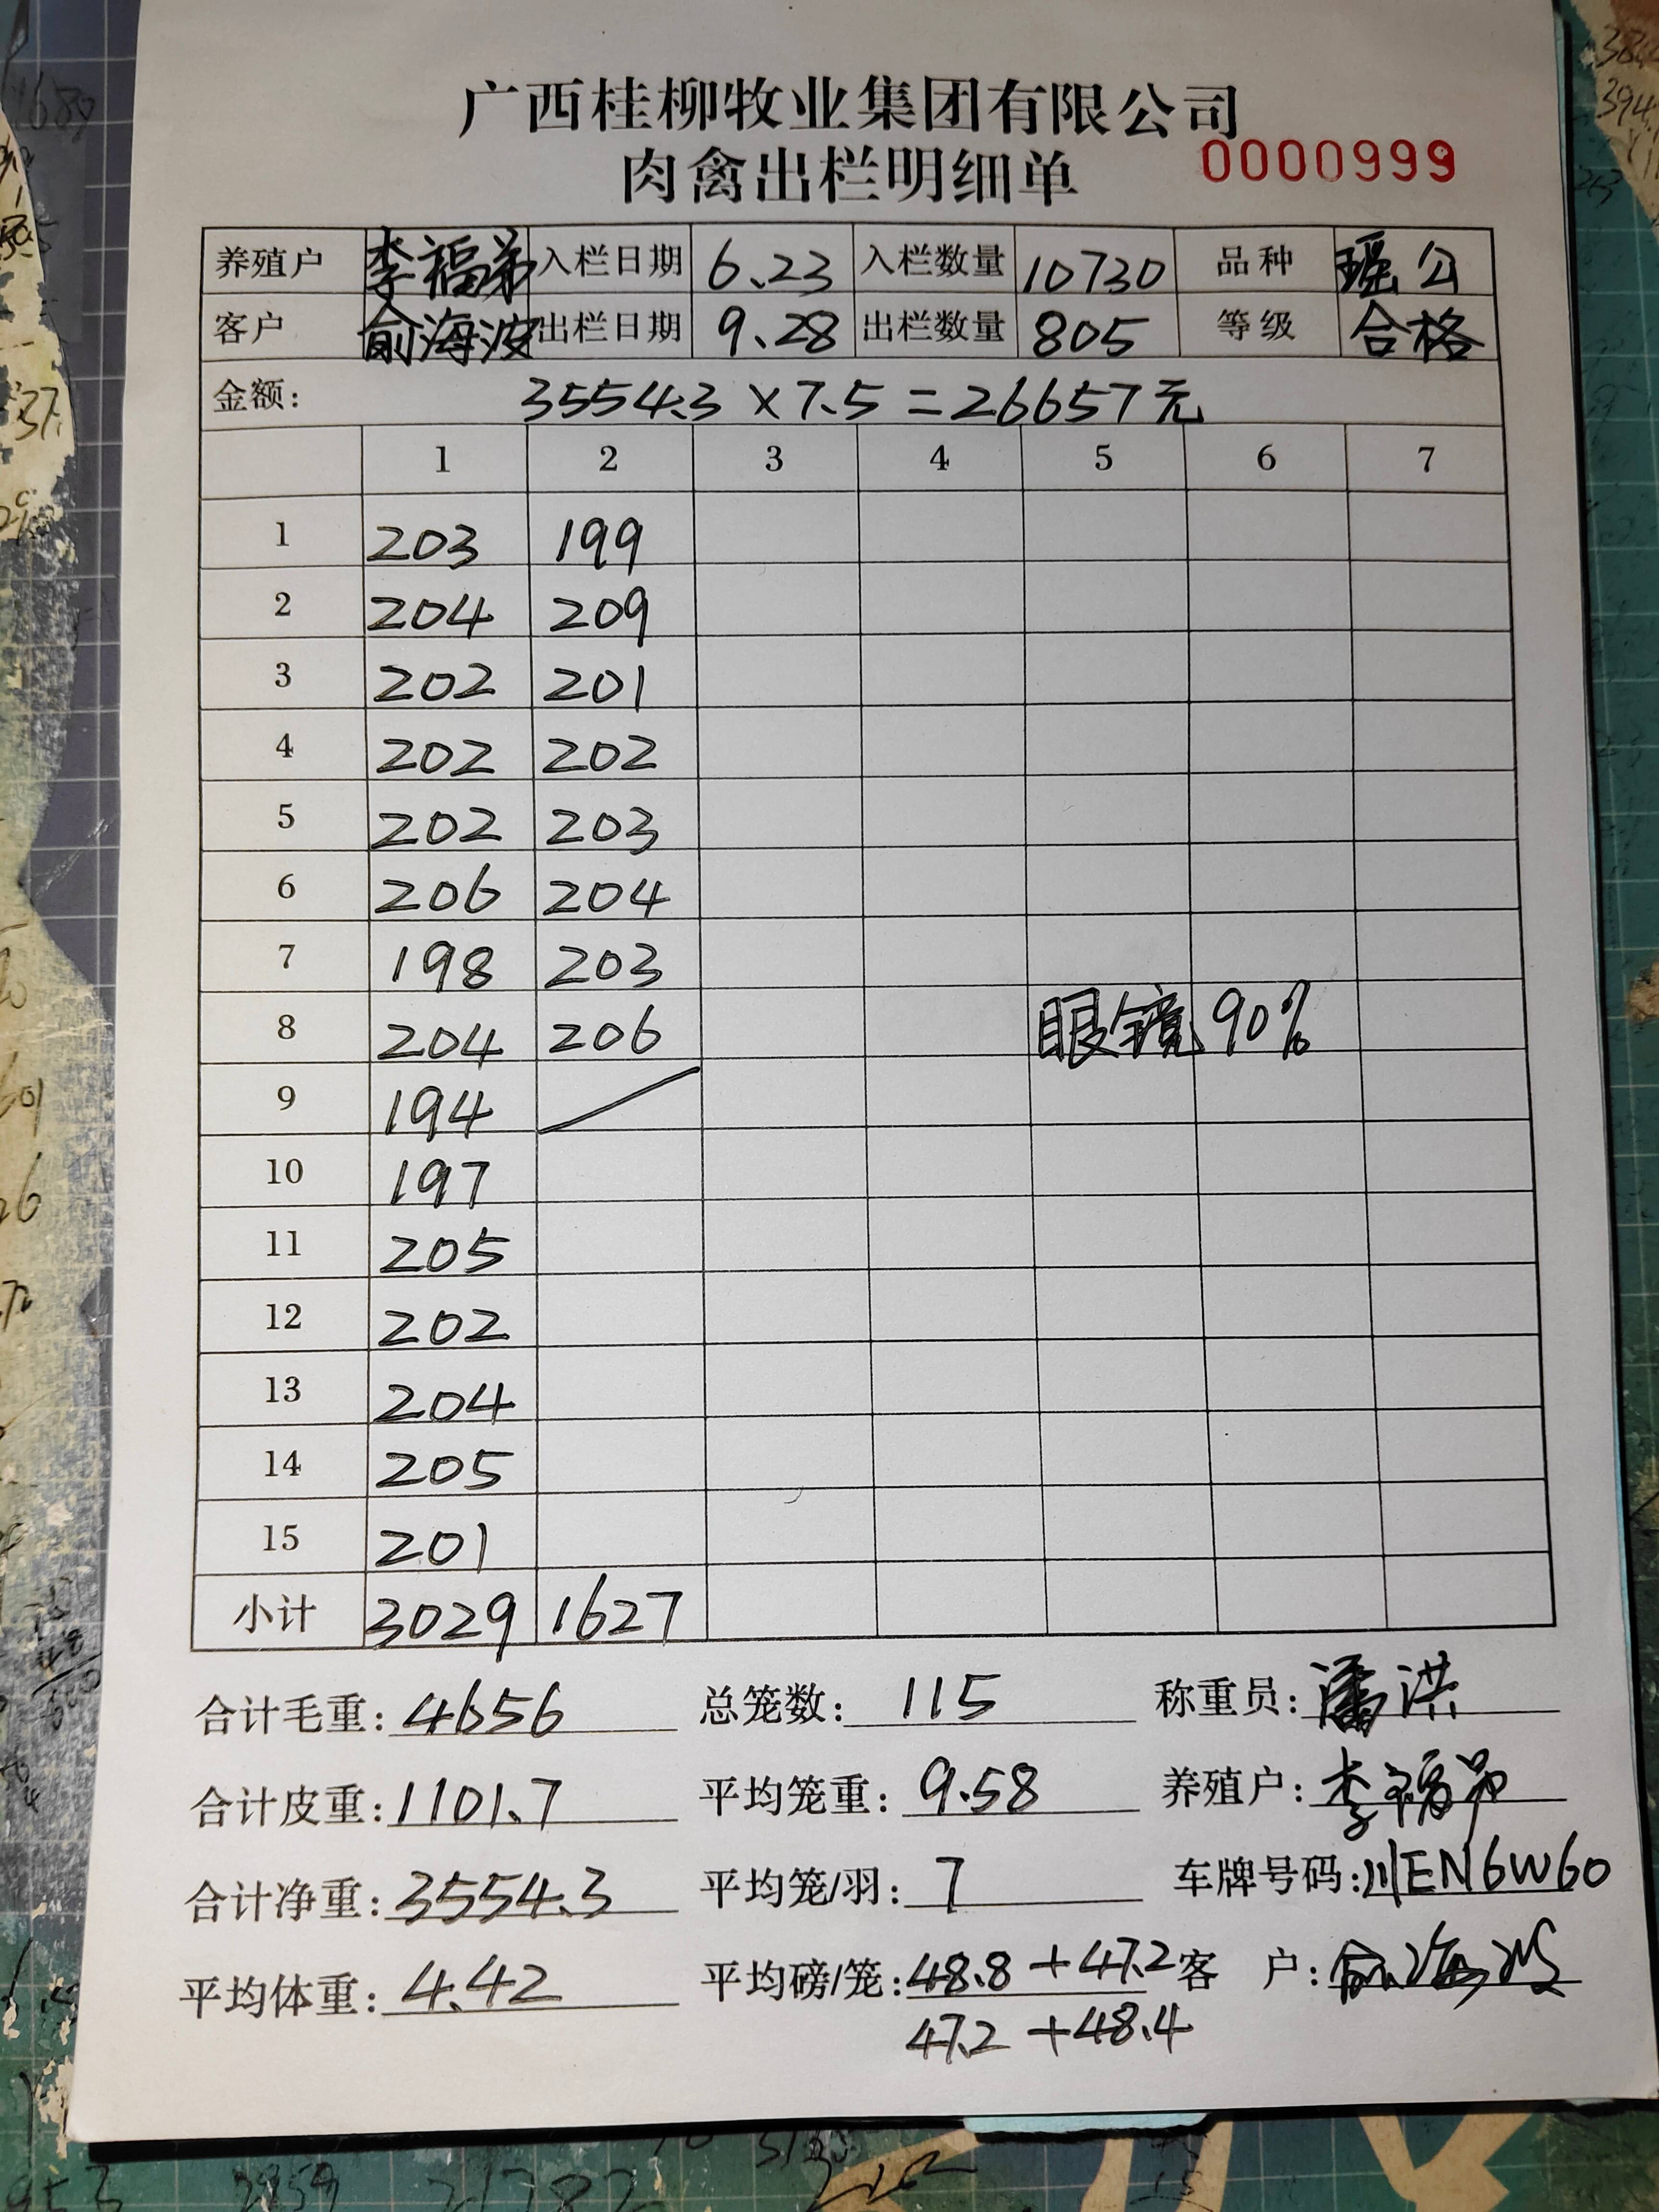 广西桂柳牧业集团有限公司
肉禽出栏明细单 0000999
养殖户 李福弟 入栏日期 6.23 入栏数量 10730 品种 瑶公
客户 俞海波 出栏日期 9.28 出栏数量 805 等级 合格
金额: 3554.3 × 7.5 = 26657元
1 2 3 4 5 6 7
1 203 199
2 204 209
3 202 201
4 202 202
5 202 203
6 206 204
7 198 203
8 204 206 眼镜 90%
9 194
10 197
11 205
12 202
13 204
14 205
15 201
小计 3029 1627
合计毛重: 4656 总笼数: 115 称重员: 潘洪
合计皮重: 1101.7 平均笼重: 9.58 养殖户: 李福弟
合计净重: 3554.3 平均笼/羽: 7 车牌号码: 川EN6W60
平均体重: 4.42 平均磅/笼: 48.8 + 47.2 客 户: 俞海波
47.2 + 48.4